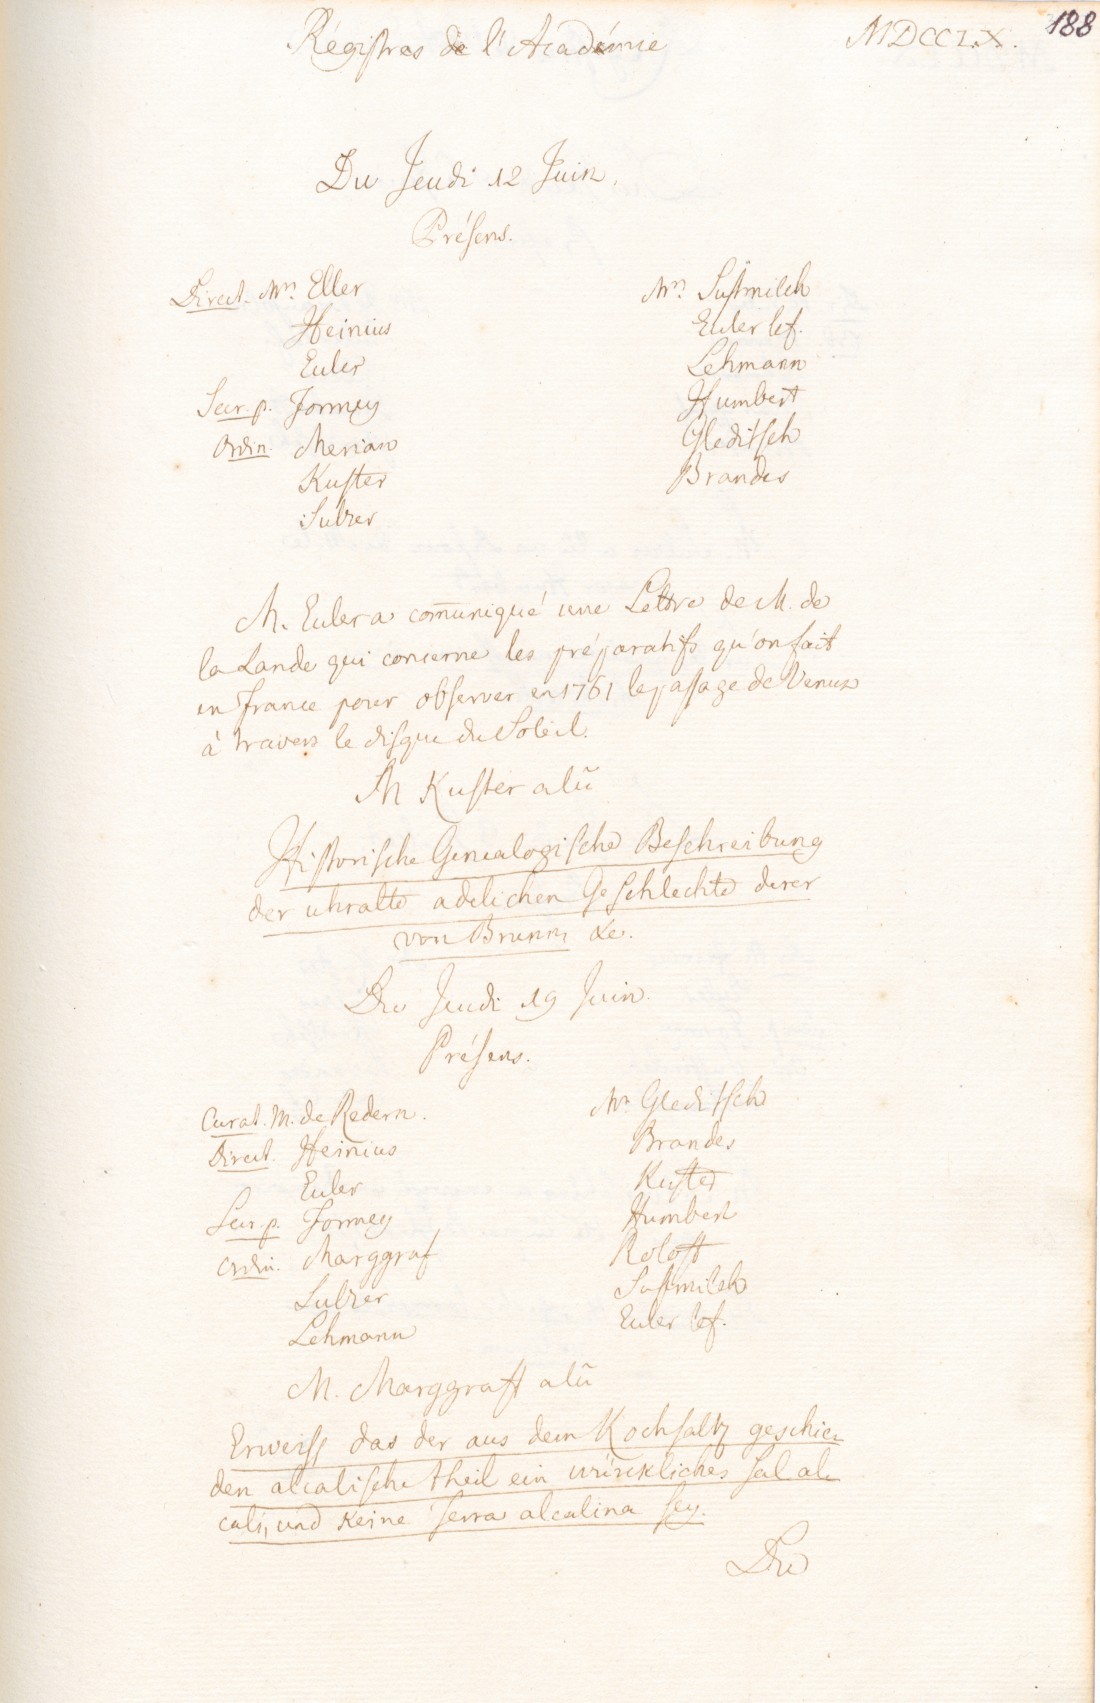 Régistres de l'Académie
MDCCLX.
188
Du Jeudi 12 Juin.
Présens.
Direct. Mrs Eller
Heinius
Euler
Secr. p. Formey
Ordin. Merian
Kuster
Sulzer
Mrs Susmilch
Euler le f.
Lehmann
Humbert
Gleditsch
Brandes
M. Euler a com̄uniqué une Lettre de M. de
la Lande qui concerne les préparatifs qu'on fait
en France pour observer en 1761 le passage de Venus
à travers le disque du Soleil.
M Kuster a lû
Historische Genealogische Beschreibung
der uhralte adelichen Geschlechte derer
von Brunn &c.
Du Jeudi 19 Juin.
Présens.
Curat. M. de Redern.
Direct. Heinius
Euler
Secr. p. Formey
Ordin. Marggraf
Sulzer
Lehmann
Mrs Gleditsch
Brandes
Kuster
Humbert
Roloff
Susmilch
Euler le f.
M. Marggraff a lû
Erweiss das der aus dem Kochsaltz geschie-
den alcalische theil ein würckliches Sal al-
cali, und keine terra alcalina sey.
Du